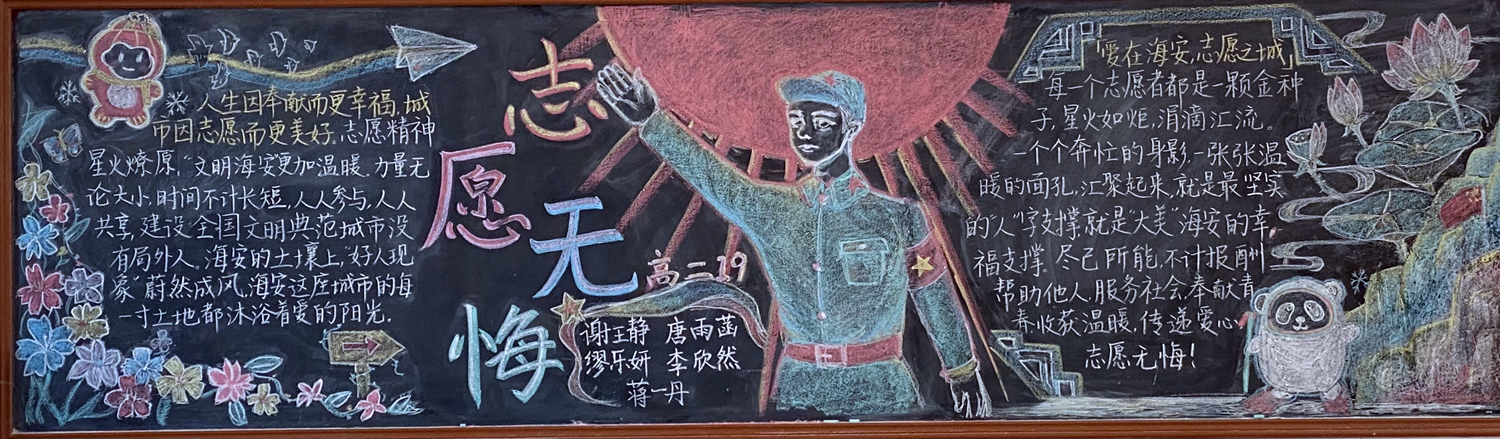 人生因奉献而更幸福,城
市因志愿而更美好。志愿精神
星火燎原,“文明海安”更加温暖。力量无
论大小,时间不计长短,人人参与,人人
共享,建设全国文明典范城市没
有局外人。海安的土壤上,“好人现
象”蔚然成风,海安这座城市的每
一寸土地都沐浴着爱的阳光.
志
愿
无
悔
高二19
谢玉静 唐雨菡
缪乐妍 李欣然
蒋一丹
「爱在海安,志愿之城」
每一个志愿者都是一颗金种
子,星火如炬,涓滴汇流。
一个个奔忙的身影,一张张温
暖的面孔,汇聚起来,就是最坚实
的人“字支撑,就是大美”海安的幸
福支撑。尽己所能,不计报酬
帮助他人,服务社会,奉献青
春,收获温暖,传递爱心
志愿无悔!